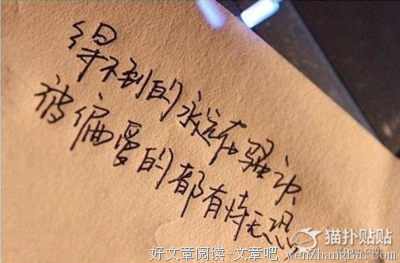 得不到的永远在骚动
被偏爱的都有恃无恐
猫扑贴贴
好文章阅读-文章吧 wenzhangba.com